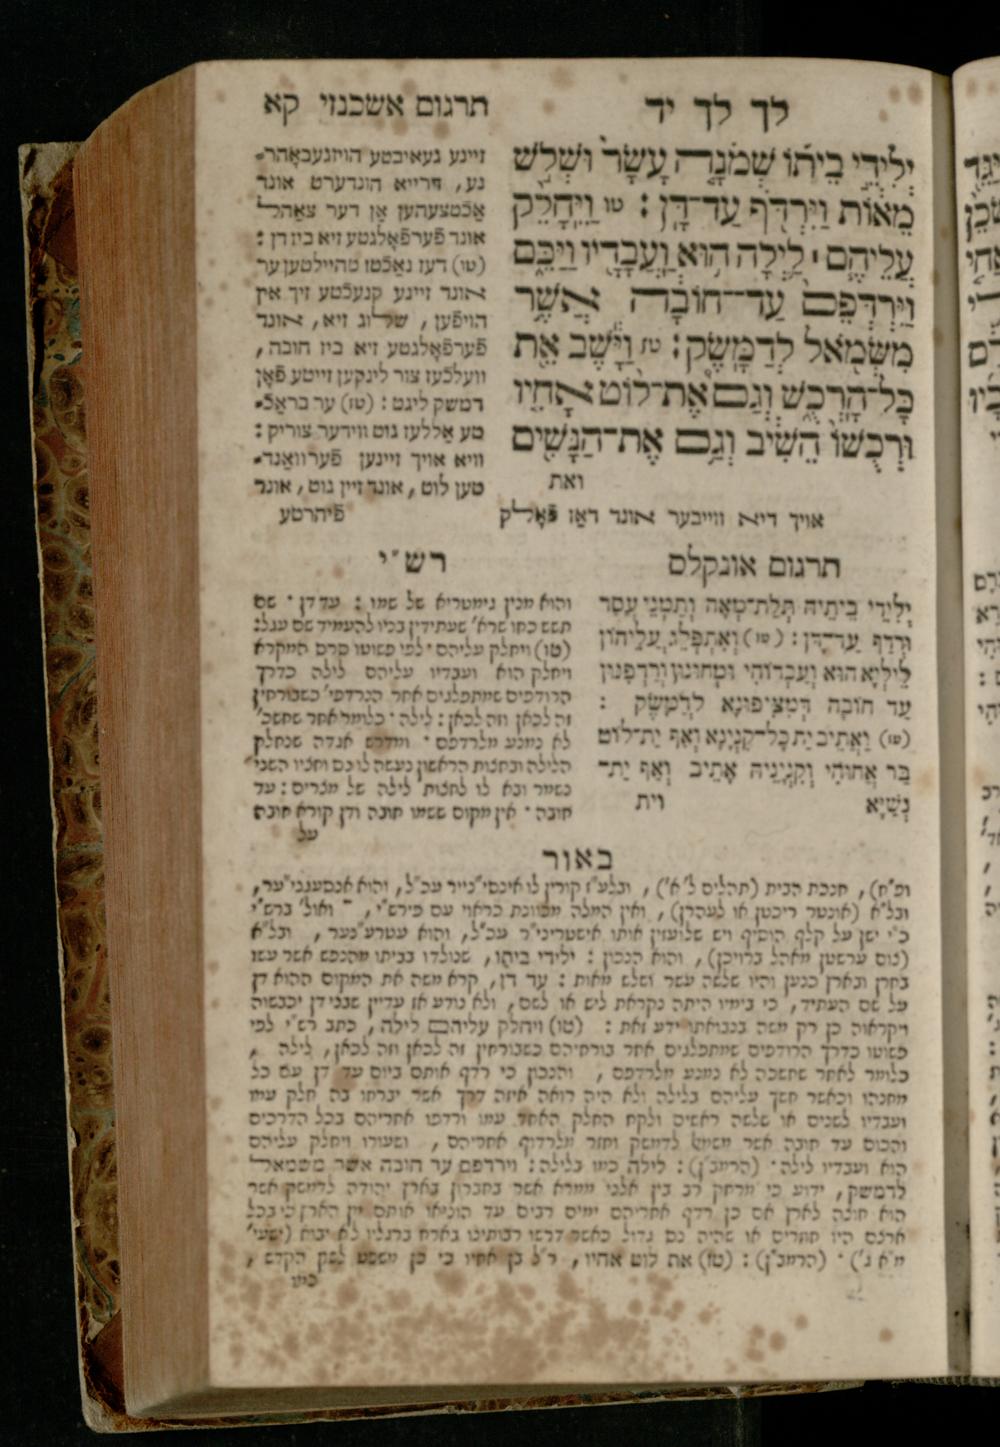 לך לך יד
יְלִידֵי בֵיתוֹ שְׁמֹנָה עָשָׂר וּשְׁלֹשׁ
מֵאוֹת וַיִּרְדֹּף עַד־דָּן : טו וַיֵּחָלֵק
עֲלֵיהֶם ׀ לַיְלָה הוּא וַעֲבָדָיו וַיַּכֵּם
וַיִּרְדְּפֵם עַד־חוֹבָה אֲשֶׁר
מִשְּׂמֹאל לְדַמָּשֶׂק : טז וַיָּשֶׁב אֵת
כָּל־הָרְכֻשׁ וְגַם אֶת־לוֹט אָחִיו
וּרְכֻשׁוֹ הֵשִׁיב וְגַם אֶת־הַנָּשִׁים
ואת
תרגום אשכנזי קא
זיינע געאיבטע הויזגעבאָהר־
נע, דרייא הונדערט אונד
אַכֿטצעהען אָן דער צאָהל
אונד פֿערפֿאָלגטע זיא ביז דן :
(טו) דעז נאַכֿטז טהיילטען ער
אונד זיינע קנעכֿטע זיך אין
הויפֿען, שלוג זיא, אונד
פֿערפֿאָלגטע זיא ביז חובה,
וועלכֿעז צור לינקען זייטע פֿאָן
דמשק ליגט : (טז) ער בראַכֿ־
טע אַללעז גוט ווידער צוריק :
וויא אויך זיינען פֿערוואַנד־
טען לוט, אונד זיין גוט, אונד
אויך דיא ווייבער אונד דאַז פֿאָלק
פֿיהרטע
תרגום אונקלס
יְלִידֵי בֵיתֵיהּ תְּלָת־מְאָה וְתַמְנֵי עֲסַר
וּרְדַף עַד־דָּן : (טו) וְאִתְפְּלֵג עֲלֵיהוֹן
לֵילְיָא הוּא וְעַבְדוֹהִי וּמְחוֹנוּן וּרְדָפִנּוּן
עַד חוֹבָה דְּמִצִּיפּוּנָא לְדַמָּשֶׂק :
(טז) וַאֲתֵיב יַת כָּל־קִנְיָנָא וְאַף יַת־לוֹט
בַּר אֲחוּהִי וְקִנְיָנֵיהּ אֲתֵיב וְאַף יַת־
נְשַׁיָּא וית
רש״י
והוא מנין גימטריא של שמו : עד דן ׳ שם
תשש כחו שרא׳ שעתידין בניו להעמיד שם עגל :
(טו) ויחלק עליהם ׳ לפי פשוטו סרס המקרא
ויחלק הוא ועבדיו עליהם לילה כדרך
הרודפים שמתפלגים אחר הנרדפי׳ כשבורחין
זה לכאן וזה לכאן : לילה ׳ כלומר אחר שחשכ׳
לא נמנע מלרדפם ׳ ומדרש אגדה שנחלק
הלילה ובחצות הראשון נעשה לו נס וחציו השני
נשמר ובא לו לחצות לילה של מצרים : עד
חובה ׳ אין מקום ששמו חובה ודן קורא חובה
על
באור
ופ״ח), חנכת הבית (תהלים ל׳ א׳), ובלע״ז קורין לו
ובל״א (אונטר ריכטן או לעהרן), ואין המלה מכוונת כראוי עם פירש״י, ואול׳ ברש״י
כ״י ישן על קלף הוסיף ויש שלועזין אותו עכ״ל, והוא , ובל״א
והוא הנכון : ילידי ביתו, שנולדו בביתו מהנפש אשר עשו
בחרן ובארץ כנען והיו שלשה עשר ושלש מאות : עד דן, קרא משה את המקום ההוא דן
על שם העתיד, כי בימיו היתה נקראת ליש או לשם, ולא נודע אז עדיין שבני דן יכבשוה
ויקראוה כן רק משה בנבואתו ידע זאת : (טו) ויחלק עליהם לילה, כתב רש״י לפי
פשוטו כדרך הרודפים שמתפלגים אחר בורחיהם כשבורחין זה לכאן וזה לכאן, לילה ,
כלומר לאחר שחשכה לא נמנע מלרדפם, והנכון כי רדף אותם ביום עד דן עם כל
מחנהו וכאשר חשך עליהם בלילה ולא היה רואה איזה דרך אשר יברחו בה חלק עמו
ועבדיו לשנים או שלשה ראשים ולקח החלק האחד עמו ורדפו אחריהם בכל הדרכים
והכום עד חובה אשר משמאל לדמשק וחזר מלרדוף אחריהם, ושעורו ויחלק עליהם
הוא ועבדיו לילה ׳ (הרמב״ן) : לילה כמו בלילה : וירדפם עד חובה אשר משמאל
לדמשק, ידוע כי מרחק רב בין אלני ממרא אשר בחברון בארץ יהודה לדמשק אשר
הוא חוצה לארץ אם כן רדף אחריהם ימים רבים עד הוציאו אותם מן הארץ כי בבל
ארצם היו חוזרים או שהיה נס גדול כאשר דרשו רבותינו בארח ברגליו לא יבוא (ישעי׳
מ״א ג׳) ׳ (הרמב״ן) : (טז) את לוט אחיו, ר״ל בן אחיו כי כן משפט לשון הקדש ,
כמו